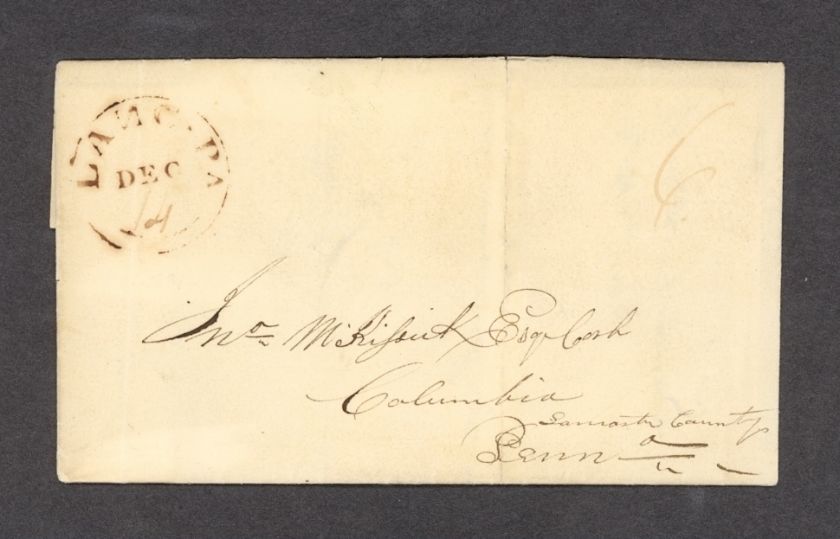 LANC. PA
DEC
14
6
Jno McKissick Esqr Cash
Columbia
Lancaster County
Penna